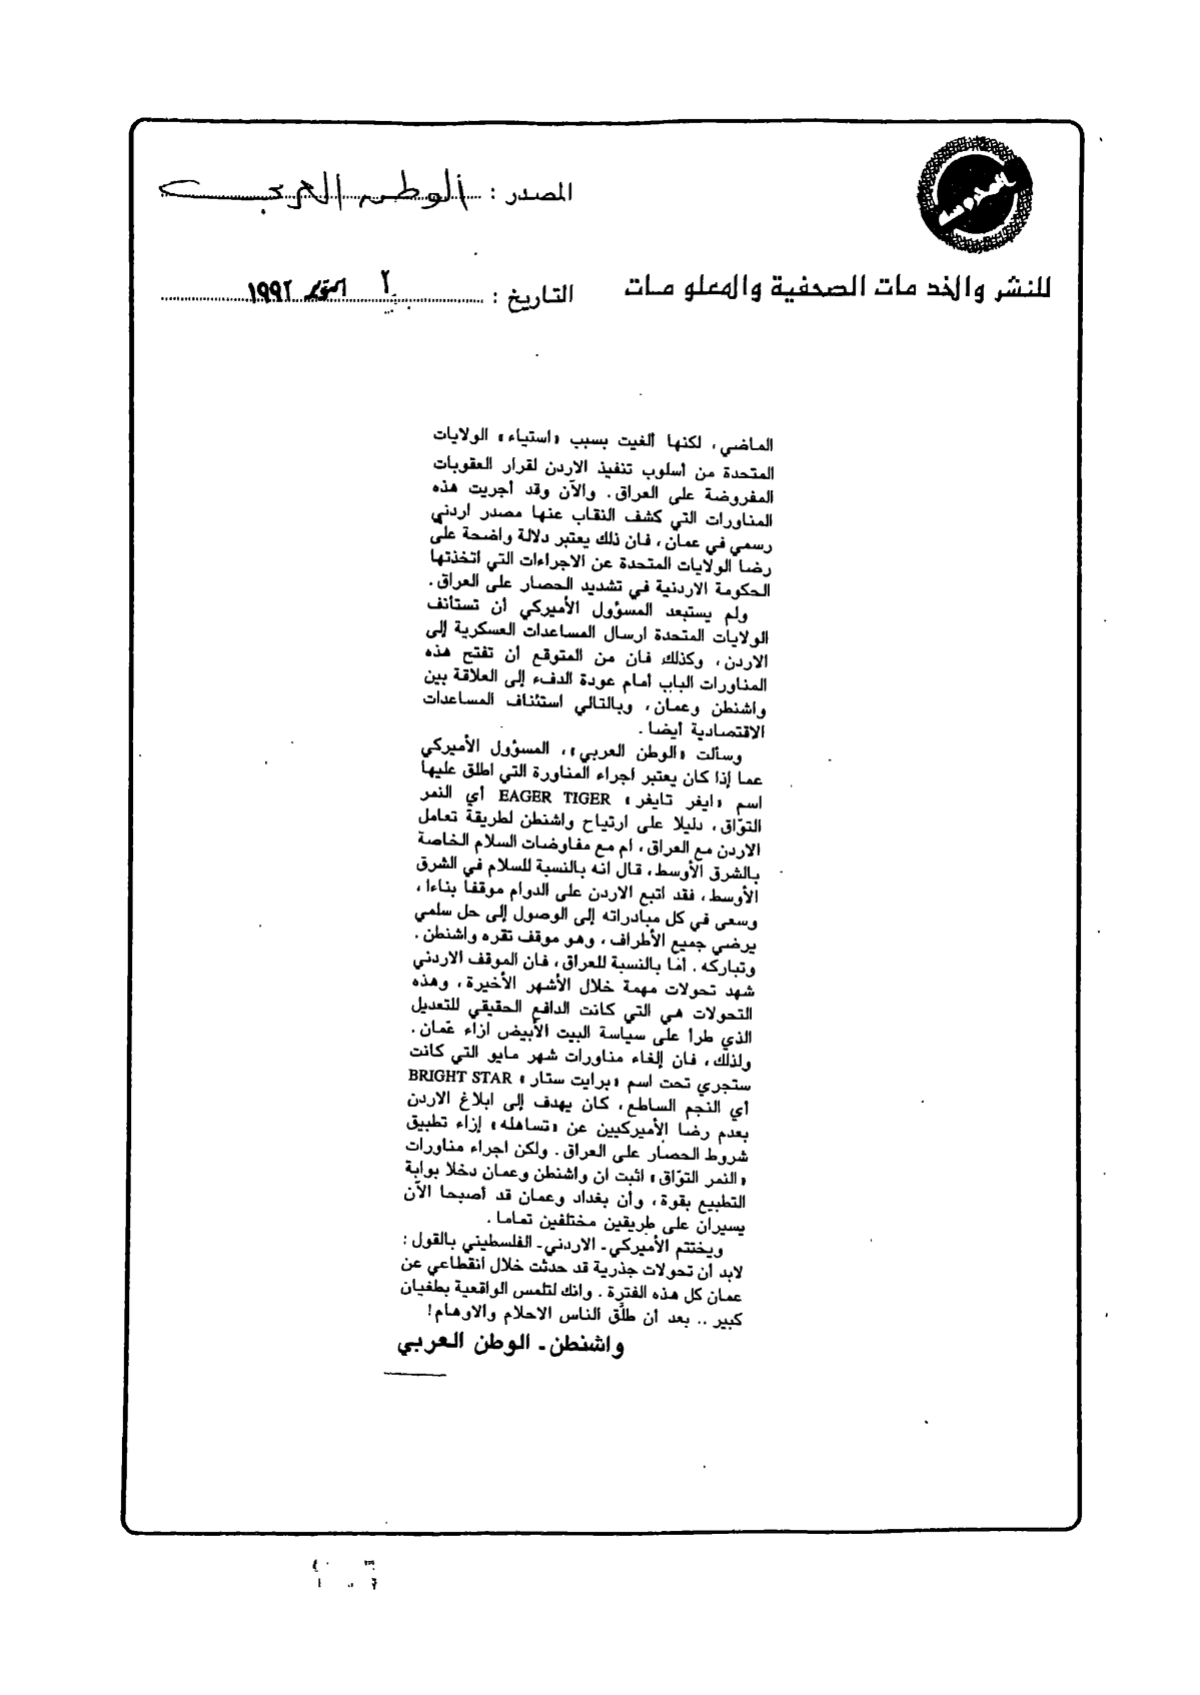 المصدر : الوطن العربي
للنشر والخدمات الصحفية والمعلومات
التاريخ : ٢ اكتوبر ١٩٩٢
الماضي، لكنها ألغيت بسبب «استياء» الولايات
المتحدة من أسلوب تنفيذ الاردن لقرار العقوبات
المفروضة على العراق. والآن وقد أجريت هذه
المناورات التي كشف النقاب عنها مصدر اردني
رسمي في عمان، فان ذلك يعتبر دلالة واضحة على
رضا الولايات المتحدة عن الاجراءات التي اتخذتها
الحكومة الاردنية في تشديد الحصار على العراق.
ولم يستبعد المسؤول الأميركي أن تستأنف
الولايات المتحدة ارسال المساعدات العسكرية إلى
الاردن، وكذلك فان من المتوقع ان تفتح هذه
المناورات الباب أمام عودة الدفء إلى العلاقة بين
واشنطن وعمان، وبالتالي استئناف المساعدات
الاقتصادية أيضا.
وسألت «الوطن العربي»، المسؤول الأميركي
عما إذا كان يعتبر اجراء المناورة التي اطلق عليها
اسم «ايغر تايغر» EAGER TIGER أي النمر
التوّاق، دليلا على ارتياح واشنطن لطريقة تعامل
الاردن مع العراق، ام مع مفاوضات السلام الخاصة
بالشرق الأوسط، قال انه بالنسبة للسلام في الشرق
الأوسط، فقد اتبع الاردن على الدوام موقفا بناءا،
وسعى في كل مبادراته إلى الوصول إلى حل سلمي
يرضي جميع الأطراف، وهو موقف تقره واشنطن.
وتباركه. أما بالنسبة للعراق، فان الموقف الاردني
شهد تحولات مهمة خلال الأشهر الأخيرة، وهذه
التحولات هي التي كانت الدافع الحقيقي للتعديل
الذي طرأ على سياسة البيت الأبيض ازاء عمّان.
ولذلك، فان إلغاء مناورات شهر مايو التي كانت
ستجري تحت اسم «برايت ستار» BRIGHT STAR
أي النجم الساطع، كان يهدف إلى ابلاغ الاردن
بعدم رضا الأميركيين عن «تساهله» إزاء تطبيق
شروط الحصار على العراق. ولكن اجراء مناورات
«النمر التوّاق» اثبت ان واشنطن وعمان دخلا بوابة
التطبيع بقوة، وأن بغداد وعمان قد أصبحا الآن
يسيران على طريقين مختلفين تماما.
ويختتم الأميركي- الاردني- الفلسطيني بالقول:
لابد أن تحولات جذرية قد حدثت خلال انقطاعي عن
عمان كل هذه الفترة. وانك لتلمس الواقعية بطغيان
كبير .. بعد أن طلّق الناس الاحلام والاوهام!
واشنطن- الوطن العربي